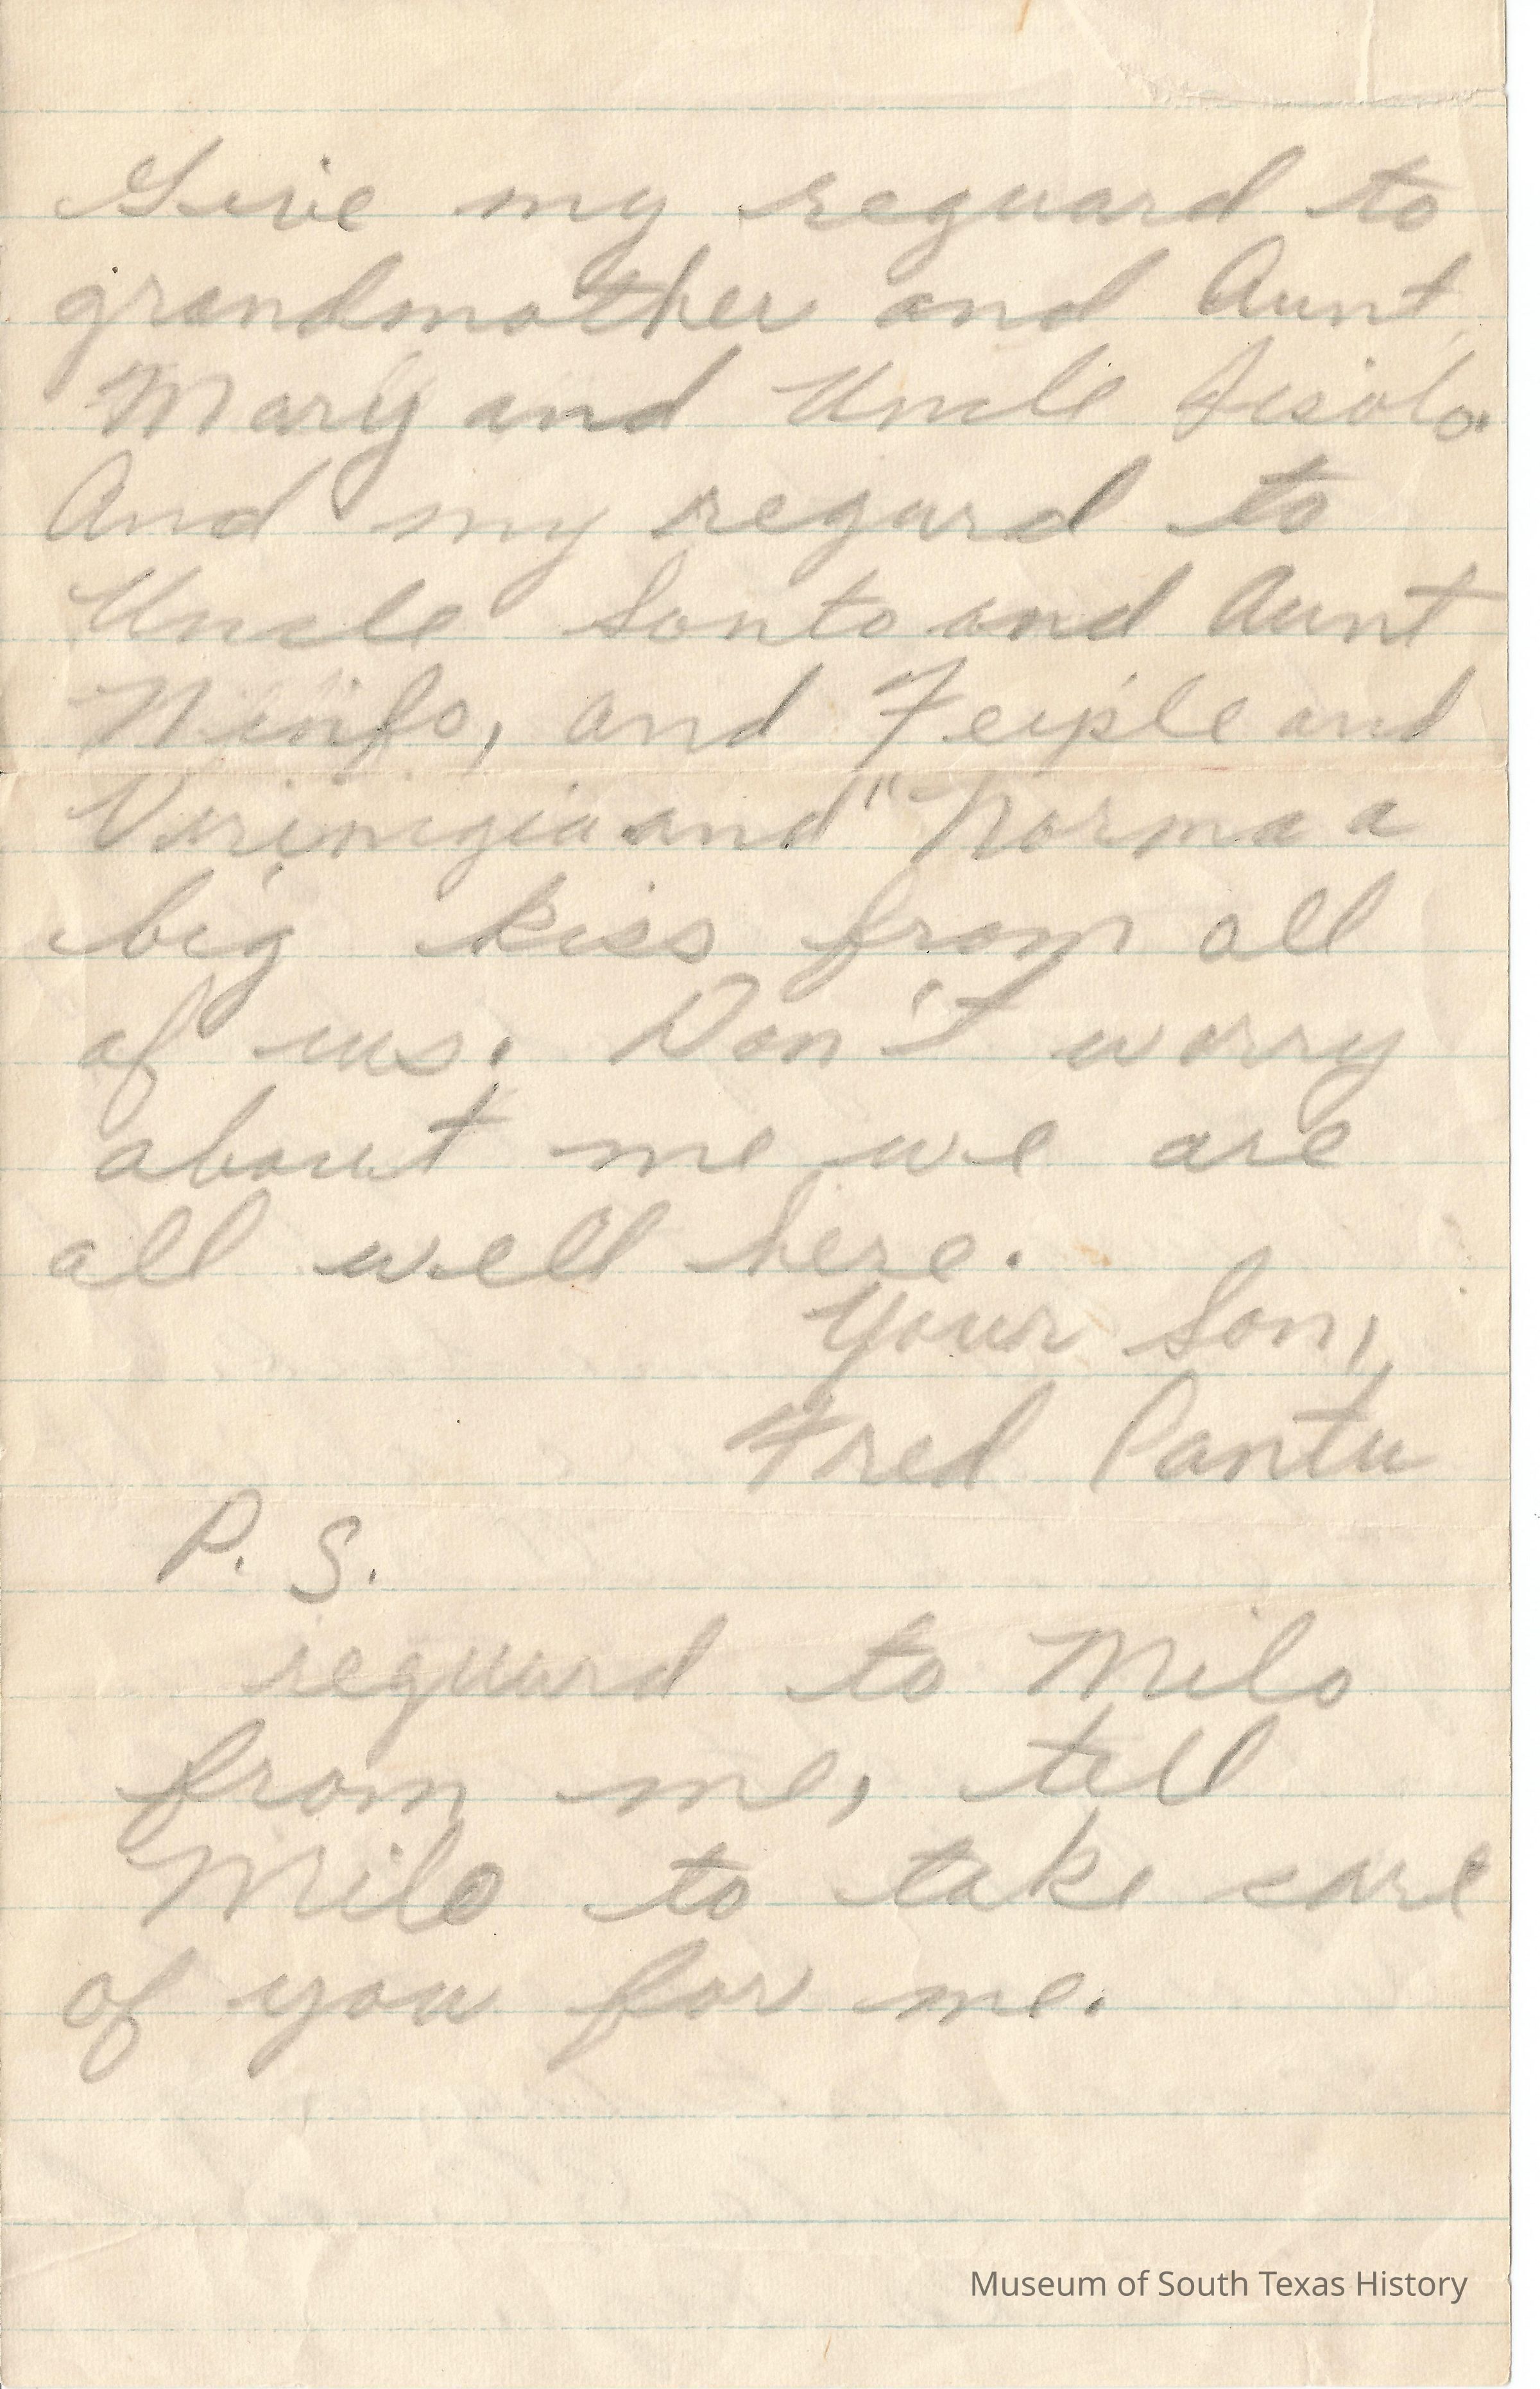 Give my reguard to
grandmother and Aunt
Mary and Uncle
And my regard to
Uncle Santo and Aunt
Ninfa, and Feiple and
Virinigia and "Norma a
big kiss from all
of us. Don't worry
about me we are
all well here.
Your Son,
Fred Cantu
P. S.
reguard to Milo
from me, tell
Milo to take care
of you for me.
Museum of South Texas History